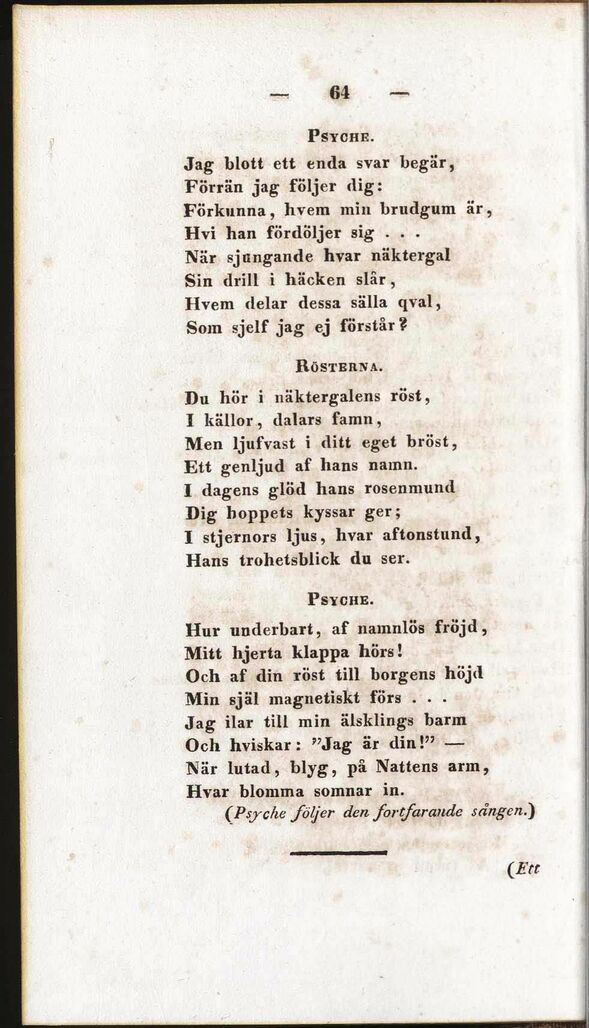 — 64 —
PSYCHE.
Jag blott ett enda svar begär,
Förrän jag följer dig:
Förkunna, hvem min brudgum är,
Hvi han fördöljer sig . . .
När sjungande hvar näktergal
Sin drill i häcken slår,
Hvem delar dessa sälla qval,
Som sjelf jag ej förstår?
RÖSTERNA.
Du hör i näktergalens röst,
I källor, dalars famn,
Men ljufvast i ditt eget bröst,
Ett genljud af hans namn.
I dagens glöd hans rosenmund
Dig hoppets kyssar ger;
I stjernors ljus, hvar aftonstund,
Hans trohetsblick du ser.
PSYCHE.
Hur underbart, af namnlös fröjd,
Mitt hjerta klappa hörs!
Och af din röst till borgens höjd
Min själ magnetiskt förs . . .
Jag ilar till min älsklings barm
Och hviskar: ”Jag är din!” —
När lutad, blyg, på Nattens arm,
Hvar blomma somnar in.
(Psyche följer den fortfarande sången.)
(Ett